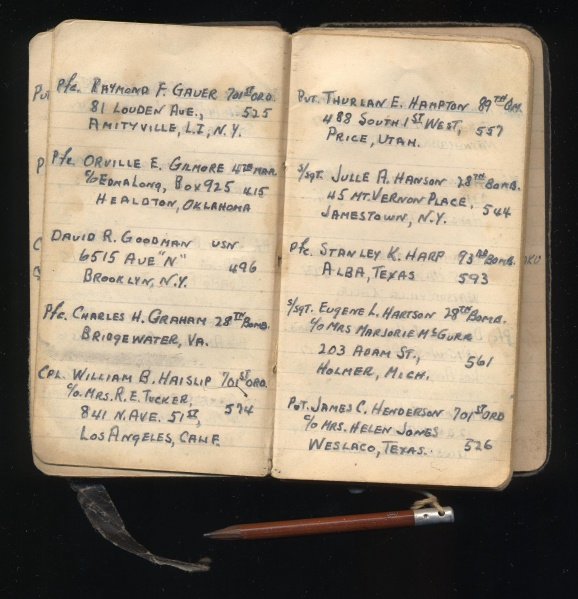 Pfc. RAYMOND F. GAUER 701ST ORD.
81 LOUDEN AVE., 525
AMITYVILLE, L.I., N.Y.
Pfc. ORVILLE E. GILMORE 4TH MAR.
c/o EDMA LONG, BOX 925 415
HEALDTON, OKLAHOMA
DAVID R. GOODMAN USN
6515 AVE "N" 496
BROOKLYN, N.Y.
Pfc. CHARLES H. GRAHAM 28TH BOMB.
BRIDGEWATER, VA.
CPL. WILLIAM B. HAISLIP 701ST ORD.
c/o MRS. R. E. TUCKER,
841 N. AVE. 51ST, 574
LOS ANGELES, CALIF.
PVT. THURLAN E. HAMPTON 89TH QM.
488 SOUTH 1ST WEST, 557
PRICE, UTAH.
S/SGT. JULLE A. HANSON 28TH BOMB.
45 MT. VERNON PLACE, 544
JAMESTOWN, N.Y.
Pfc. STANLEY K. HARP 93RD BOMB.
ALBA, TEXAS 593
S/SGT. EUGENE L. HARTSON 28TH BOMB.
c/o MRS MARJORIE McGURR
203 ADAM ST., 561
HOLMER, MICH.
PVT. JAMES C. HENDERSON 701ST ORD
c/o MRS. HELEN JONES
WESLACO, TEXAS. 526